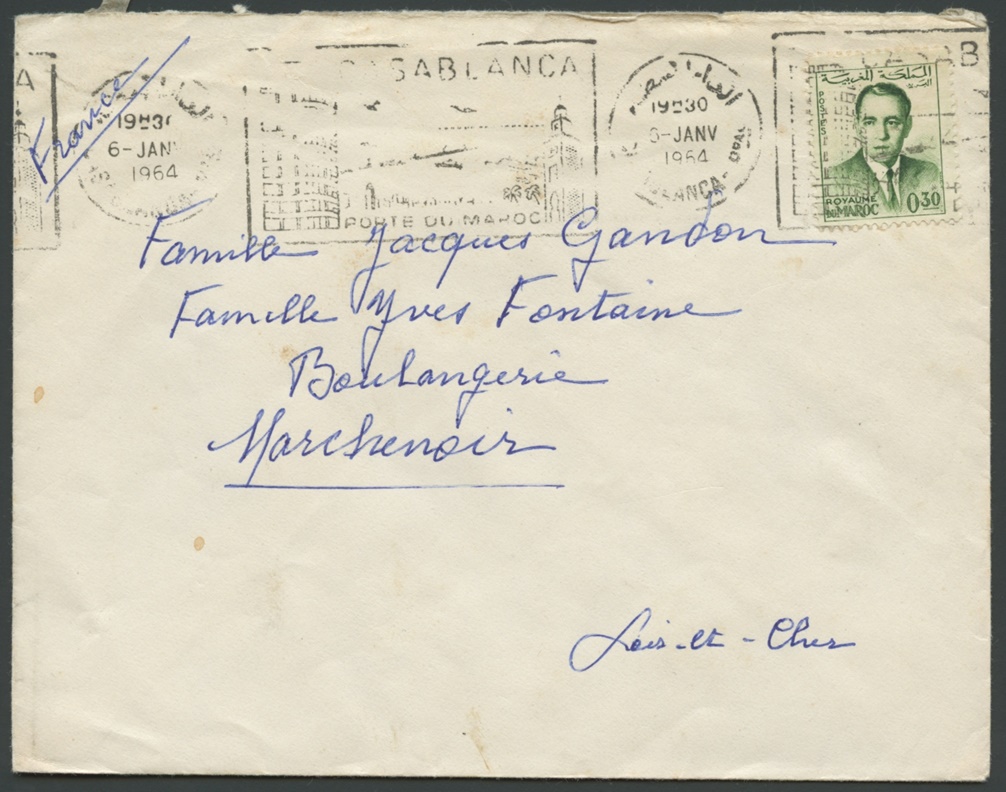 A
CASABLANCA
CASAB
France
19H30
6-JANV
1964
19H30
6-JANV
1964
PORTE DU MAROC
المملكة المغربية
البريد
POSTES
ROYAUME
DU MAROC
0.30
Famille Jacques Gandon
Famille Yves Fontaine
Boulangerie
Marchenoir
Loir-et-Cher